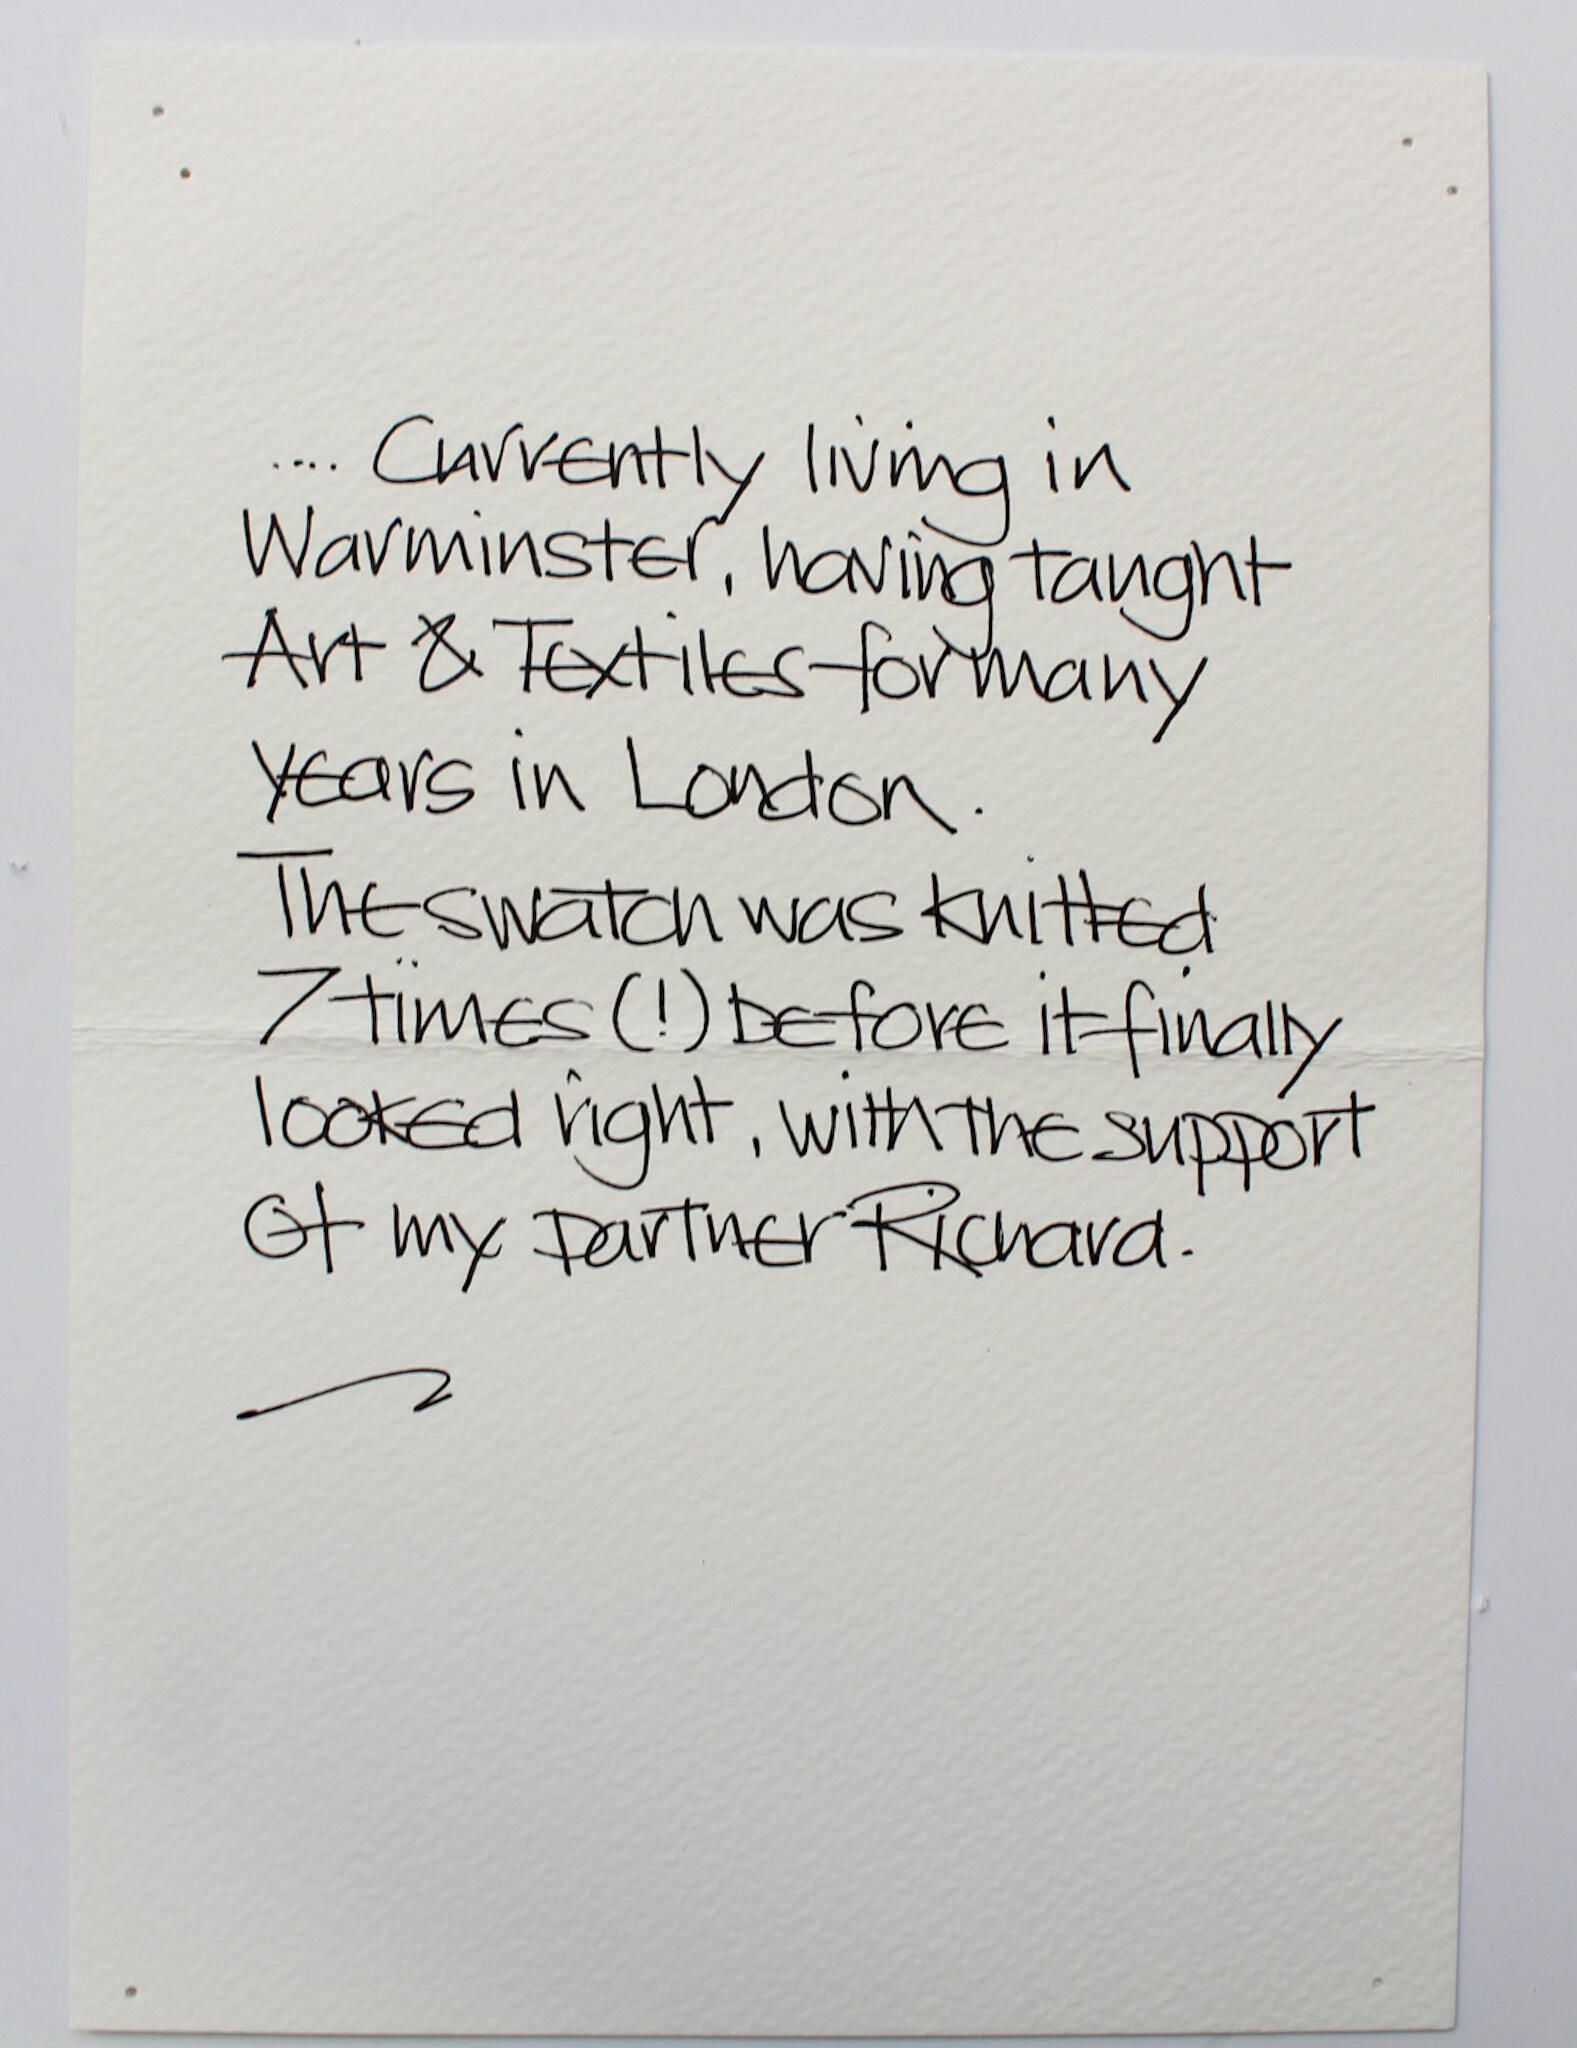 .... Currently living in
Warminster, having taught
Art & Textiles for many
years in London.
The swatch was knitted
7 times (!) before it finally
looked right, with the support
of my partner Richard.